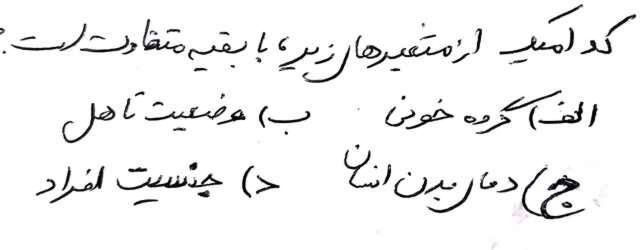 کدامیک از متغیرهای زیر، با بقیه متفاوت است؟
الف) گروه خونی ب) وضعیت تاهل
ج) دمای بدن انسان د) جنسیت افراد